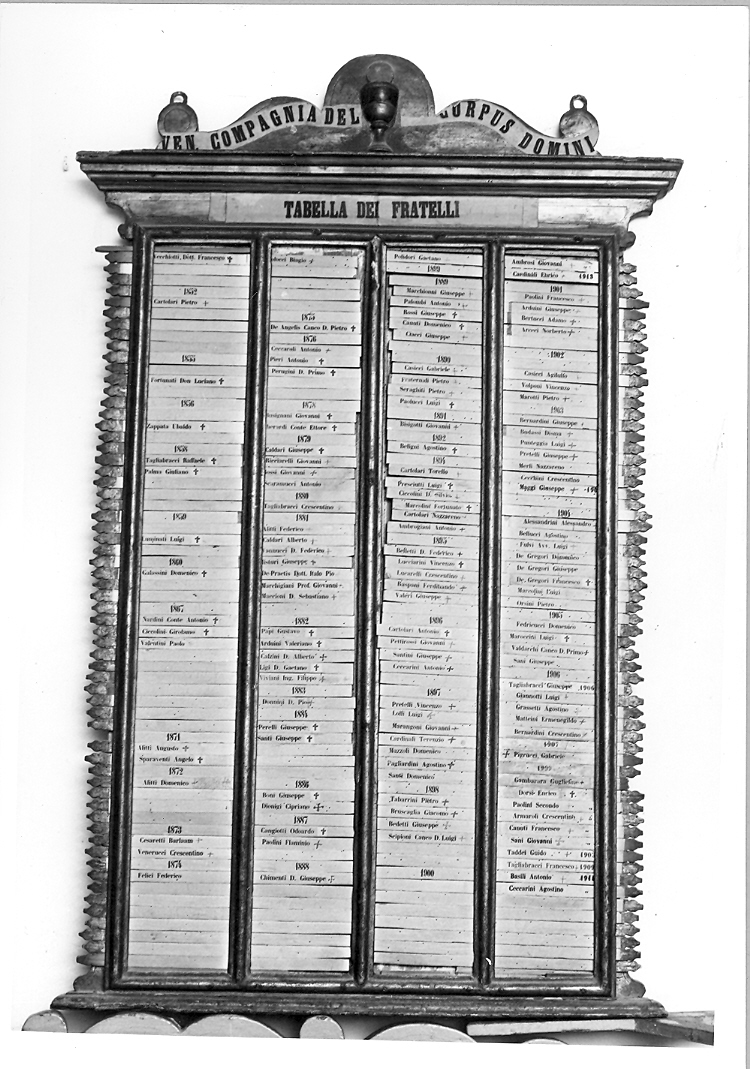 VEN. COMPAGNIA DEL CORPUS DOMINI
TABELLA DEI FRATELLI
Vecchiotti, Dott. Francesco †
1852
Cartolari Pietro †
1855
Fortunati Don Luciano †
1856
Zappata Ubaldo †
1858
Tagliabracci Raffaele †
Palma Giuliano †
1859
Lampirati Luigi †
1860
Galassini Domenico †
1867
Nardini Conte Antonio †
Ciccolini Girolamo †
Valentini Paolo
1871
Alitti Augusto †
Sparaventi Angelo †
1872
Alitti Domenico
1873
Cesaretti Barizam
Venerucci Crescentino †
1874
Felici Federico
Biagio †
De Angelis Canco D. Pietro †
1876
Ceccaroli Antonio
Pieri Antonio †
Perugini D. Primo †
1878
Giovanni †
Conte Ettore †
1879
Caldari Giuseppe †
Ricciarelli Giovanni
Rossi Giovanni
Scaramucci Antonio
1880
Tagliabracci Crescentino
1881
Alitti Federico
Caldari Alberto †
D. Federico
Giuseppe †
De Praetis Dott. Italo Pio
Marchigiani Prof. Giovanni
Maccioni D. Sebastiano †
1882
Papi Gustavo †
Arduini Valeriano †
Calzini D. Alberto †
Ligi D. Gaetano †
Viviani Ing. Filippo
1883
Donnini D. Pio
1884
Perelli Giuseppe †
Santi Giuseppe †
1886
Boni Giuseppe †
Dionigi Cipriano †
1887
Cangiotti Odoardo †
Paolini Flaminio †
1888
Chimenti D. Giuseppe †
Polidori Gaetano
1889
1889
Marchionni Giuseppe
Palombi Antonio
Rossi Giuseppe †
Canuti Domenico †
Ciacci Giuseppe †
1890
Casicci Gabriele
Fraternali Pietro
Seraghiti Pietro
Paolucci Luigi †
1891
Bisigotti Giovanni †
1892
Beligni Agostino †
1894
Cartolari Torello
Presciutti Luigi †
Ciccolini D. Silvio
Marcolini Fortunato †
Cartolari Nazzareno
Ambrogiani Antonio †
1895
Belletti D. Federico †
Lucciarini Vincenzo †
Lucarelli Crescentino
Rasponi Ferdinando
Valeri Giuseppe
1896
Cartolari Antonio
Pettirossi Giovanni
Santini Giuseppe †
Ceccarini Antonio †
1897
Pretelli Vincenzo
Loffi Luigi
Marangoni Giovanni †
Cardinali Terenzio †
Mazzoli Domenico
Pagliardini Agostino †
Santi Domenico
1898
Tabarrini Pietro †
Bruscaglia Giacomo †
Bedetti Giuseppe
Scipioni Canco D. Luigi
1900
Ambrosi Giovanni
Cardinali Enrico 1913
1901
Paolini Francesco
Arduini Giuseppe
Bertucci Adamo †
Arceci Norberto †
1902
Casicci Agilulfo
Volponi Vincenzo
Marotti Pietro †
1903
Bernardini Giuseppe
Luigi †
Pretelli Giuseppe †
Merli Nazzareno
Cecchini Crescentino
Maggi Giuseppe †
1904
Alessandrini Alessandro
Bellucci Agostino
Fulvi Avv. Luigi
De Gregori Domenico
De Gregori Giuseppe
De Gregori Francesco †
Marcolini Luigi
Orsini Pietro
1905
Fedricucci Domenico
Maroccini Luigi †
Valdarchi Canco D. Primo †
Sani Giuseppe
1906
Tagliabracci Giuseppe 1906
Giannotti Luigi †
Grassetti Agostino
Matteini Ermenegildo †
Bernardini Crescentino
1907
† Pigrucci Gabriele
Gambarara Guglielmo
Dorsi Enrico †
Paolini Secondo
Amaroli Crescentino
Canuti Francesco
Sani Giovanni
Taddei Guido 190
Tagliabracci Francesco 1909
Basili Antonio 1911
Ceccarini Agostino